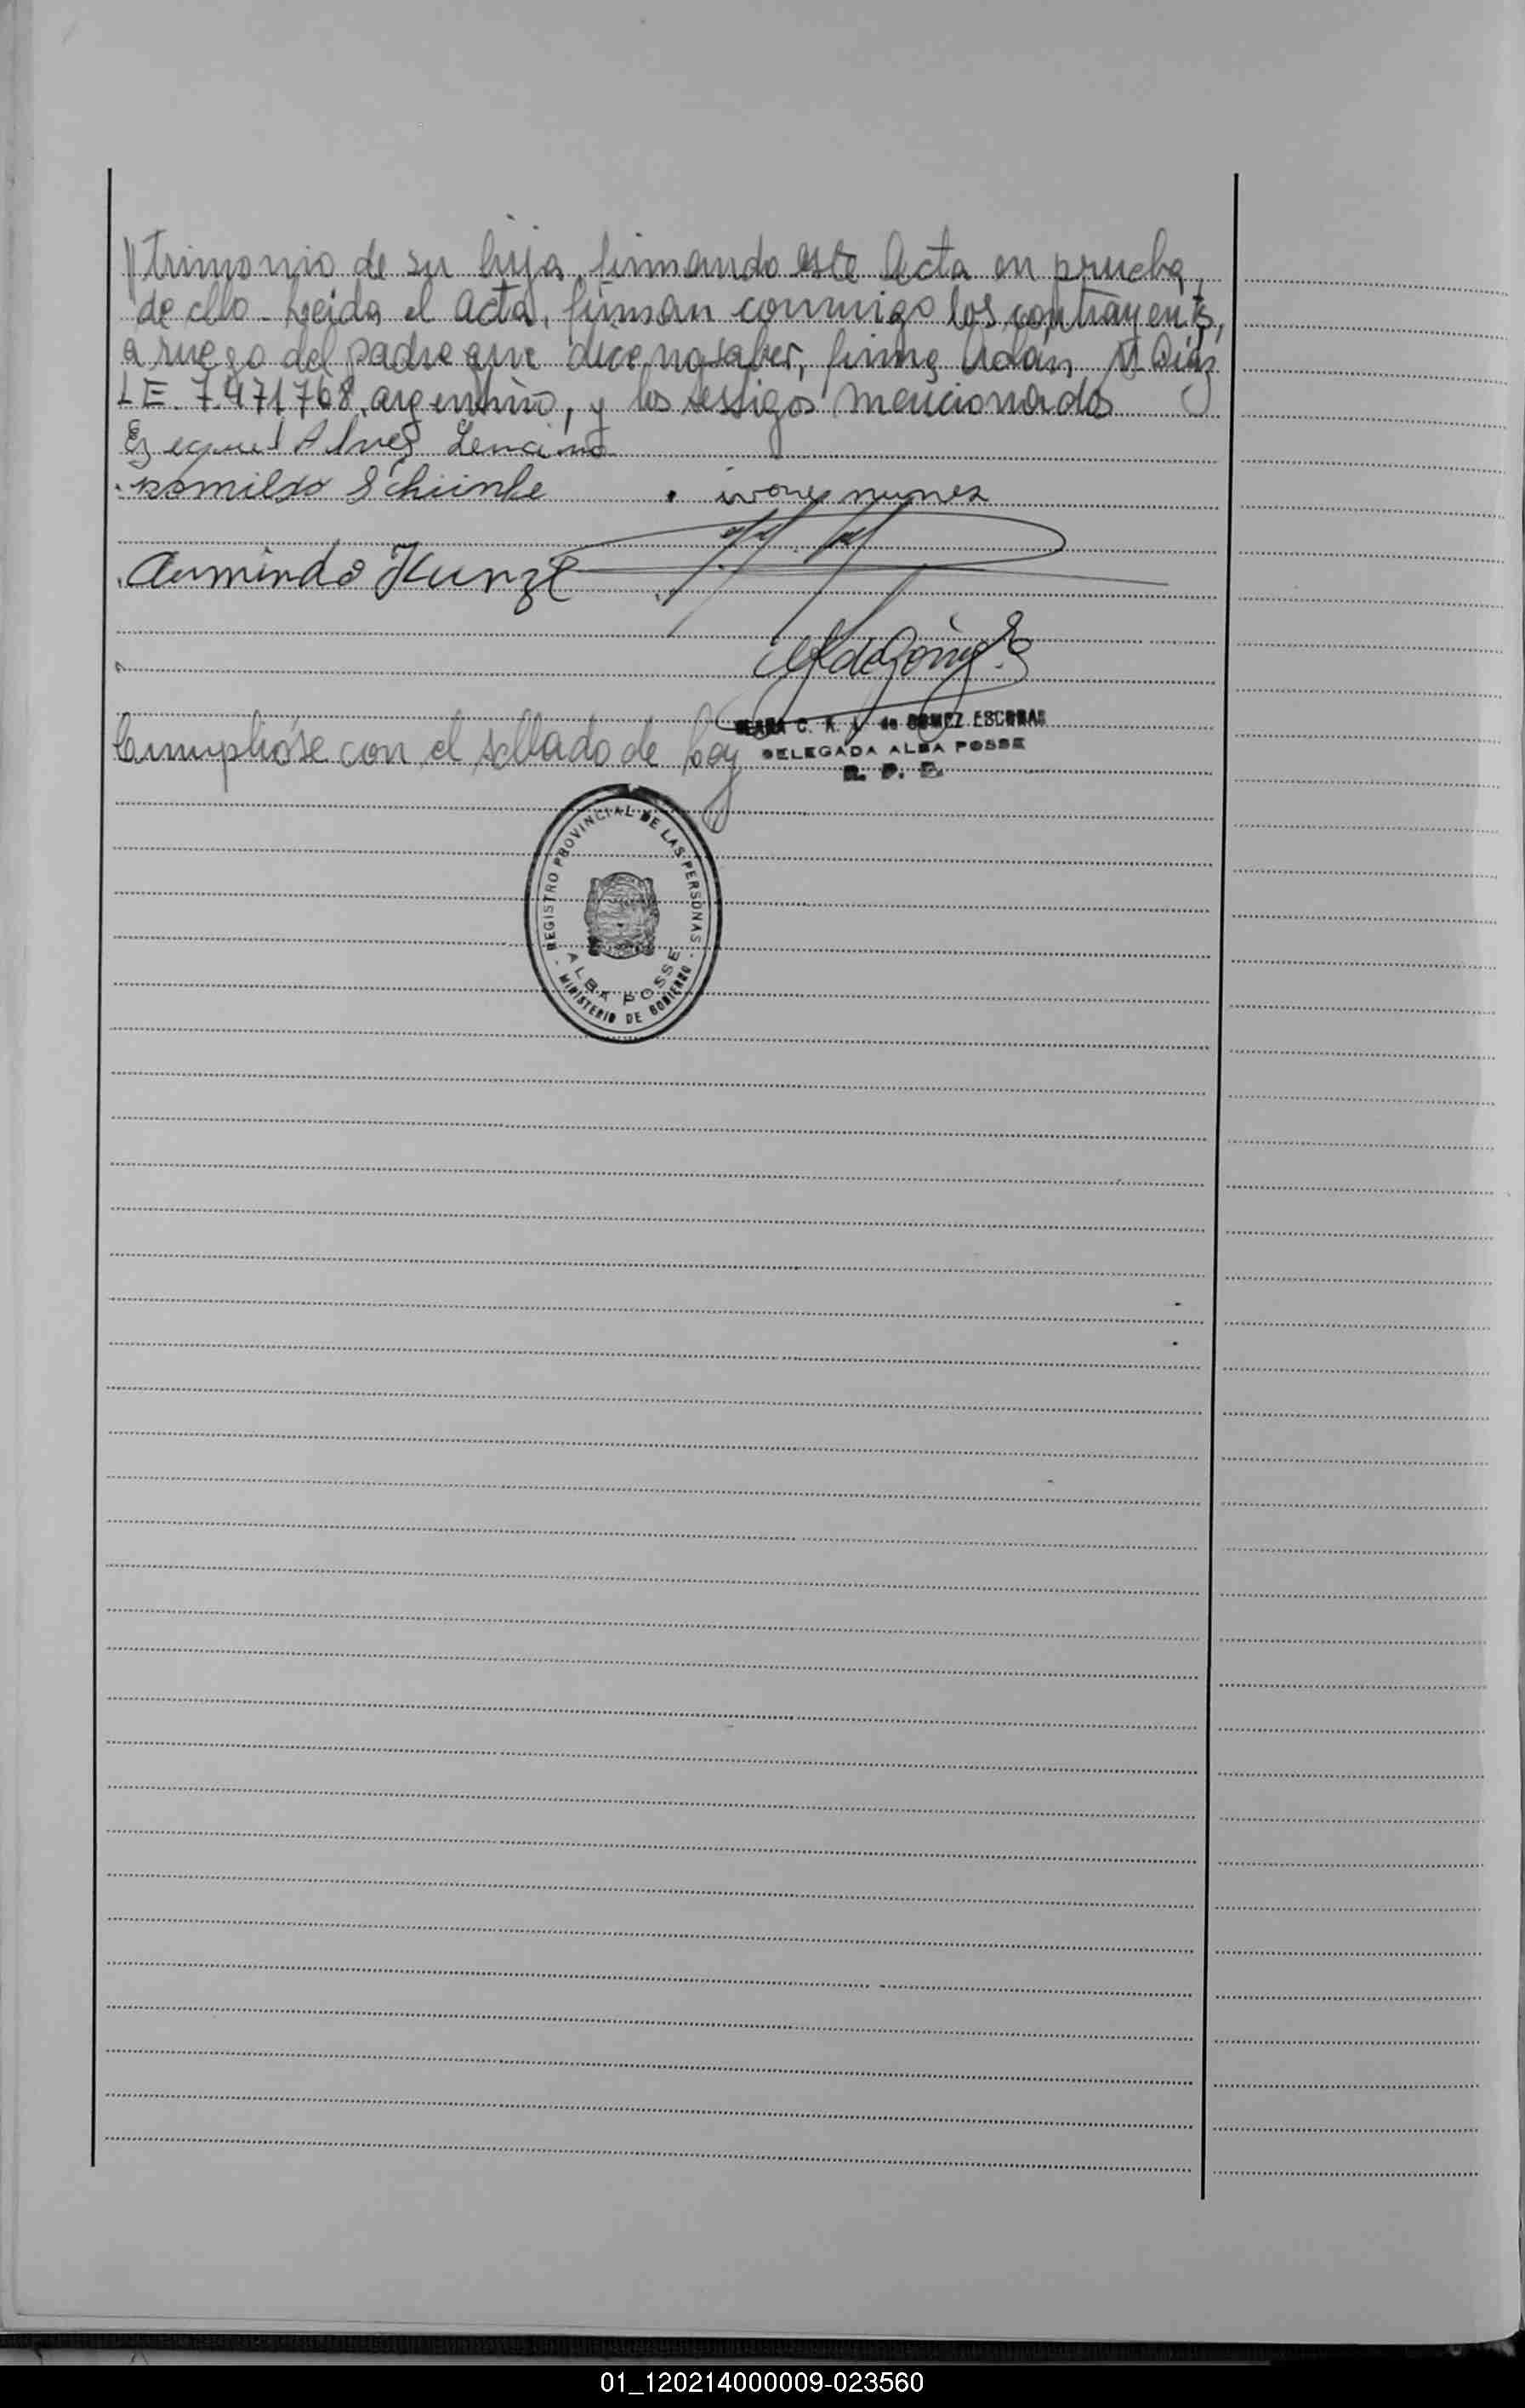 //trimonio de su hija, firmando este Acta en prueba
de ello - Leida el Acta, firman conmigo los contrayentes,
a ruego del padre que dice no saber, firma Adán M Diaz
LE. 7.471.768, argentino, y los testigos mencionados
Ezequiel Alves Lencina
Romildo Schiinke . ivone nunes
Armindo Kunze
C. R. A. de GOMEZ ESCOBAR
Cumplióse con el sellado de ley
DELEGADA ALBA POSSE
R. P. P.
REGISTRO PROVINCIAL DE LAS PERSONAS
ALBA POSSE
MINISTERIO DE GOBIERNO
01_120214000009-023560